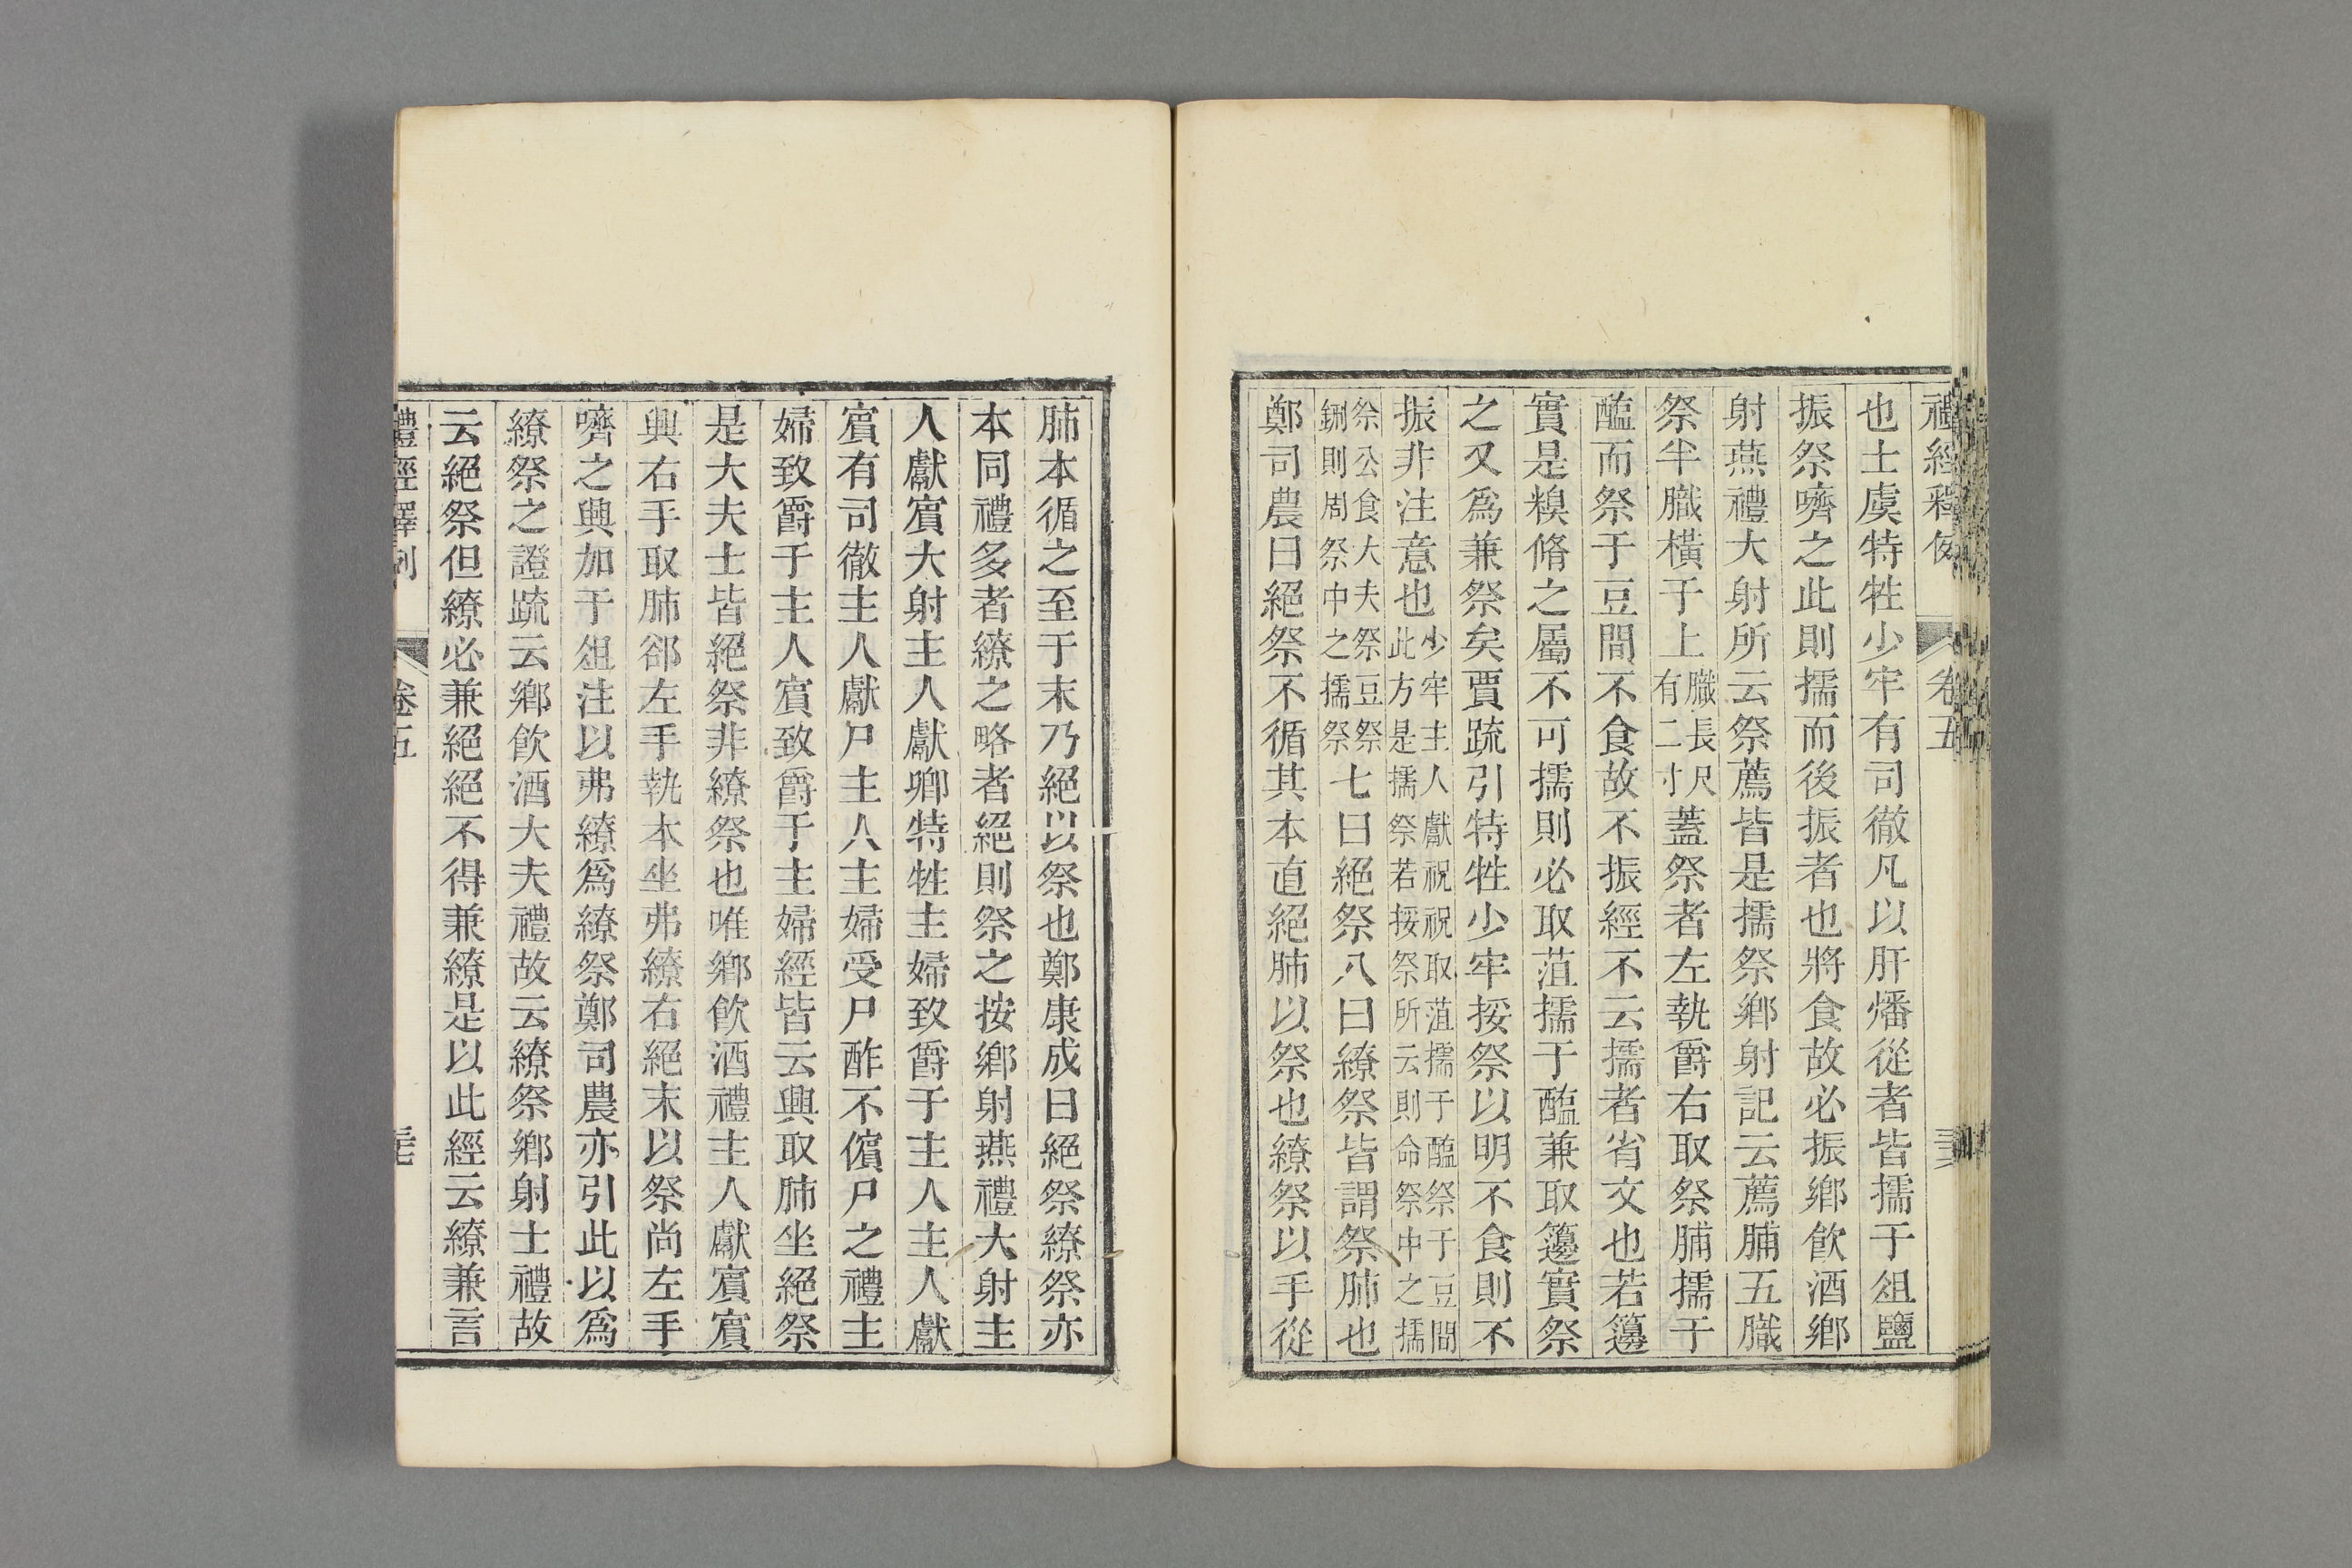 禮經釋例　卷五
也士虞特牲少牢有司徹凡以肝燔從者皆擩于俎鹽
振祭嚌之此則擩而後振者也將食故必振鄉飲酒鄉
射燕禮大射所云祭薦皆是擩祭鄉射記云薦脯五膱
祭半膱橫于上膱長尺有二寸蓋祭者左執爵右取祭脯擩于
醢而祭于豆間不食故不振經不云擩者省文也若籩
實是糗脩之屬不可擩則必取菹擩于醢兼取籩實祭
之又爲兼祭矣賈疏引特牲少牢挼祭以明不食則不
振非注意也少牢主人獻祝祝取菹擩于醢祭于豆間此方是擩祭若挼祭所云則命祭中之擩
祭公食大夫祭豆祭鉶則周祭中之擩祭七曰絕祭八曰繚祭皆謂祭肺也
鄭司農曰絕祭不循其本直絕肺以祭也繚祭以手從
肺本循之至于末乃絕以祭也鄭康成曰絕祭繚祭亦
本同禮多者繚之略者絕則祭之按鄉射燕禮大射主
人獻賔大射主人獻卿特牲主婦致爵于主人主人獻
賔有司徹主人獻尸主人主婦受尸酢不儐尸之禮主
婦致爵于主人賔致爵于主婦經皆云興取肺坐絕祭
是大夫士皆絕祭非繚祭也唯鄉飲酒禮主人獻賔賔
興右手取肺郤左手執本坐弗繚右絕末以祭尚左手
嚌之興加于俎注以弗繚爲繚祭鄭司農亦引此以爲
繚祭之證疏云鄉飲酒大夫禮故云繚祭鄉射士禮故
云絕祭但繚必兼絕絕不得兼繚是以此經云繚兼言
禮經釋例　卷五